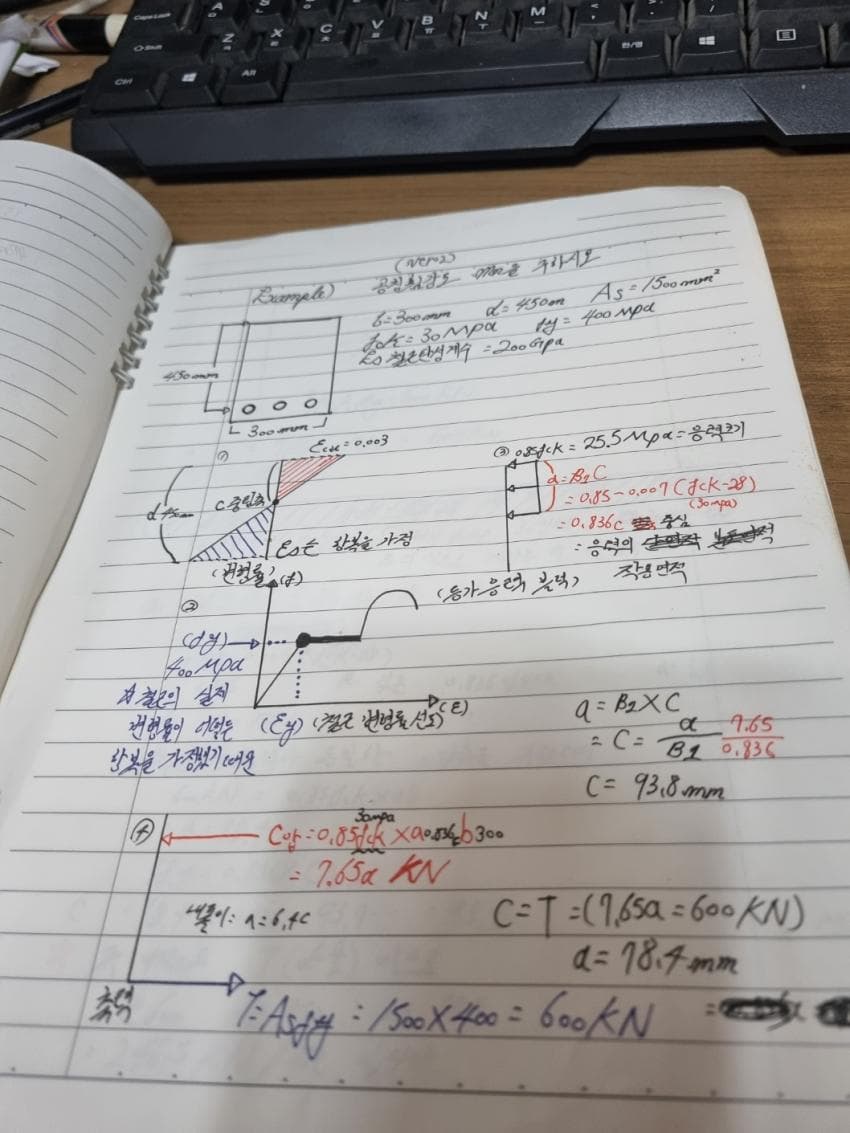 Caps Lock
A
S
Shift
Z
X
C
V
B
N
M
Ctrl
Alt
한/영
(ver2)
Example) 공칭휨강도 Mn을 구하시오
b=300mm d=450m As=1500mm²
fck=30Mpa fy=400Mpa
Es 철근탄성계수 =200Gpa
450mm
300mm
① εcu=0.003
d 450mm
C 중립축
εs는 항복을 가정
(변형률)
③ 0.85fck = 25.5Mpa=응력크기
a=B1C
=0.85-0.007(fck-28)
(30mpa)
=0.836c 중심
:응력의
작용면적
(등가응력 블럭)
② (f)
(fy)
400Mpa
철근의 실제
변형률이 어떻든 (εy) (철근 변형률 선도) (ε)
항복을 가정했기 때문
a=B1×C
=C= a/B1 7.65/0.836
C= 93.8mm
④ 30mpa
C압=0.85fck×a 0.836c b300
=7.65a KN
내풀이: a=6.4c
C=T=(7.65a=600KN)
a=78.4mm
T=Asfy =1500×400=600KN =